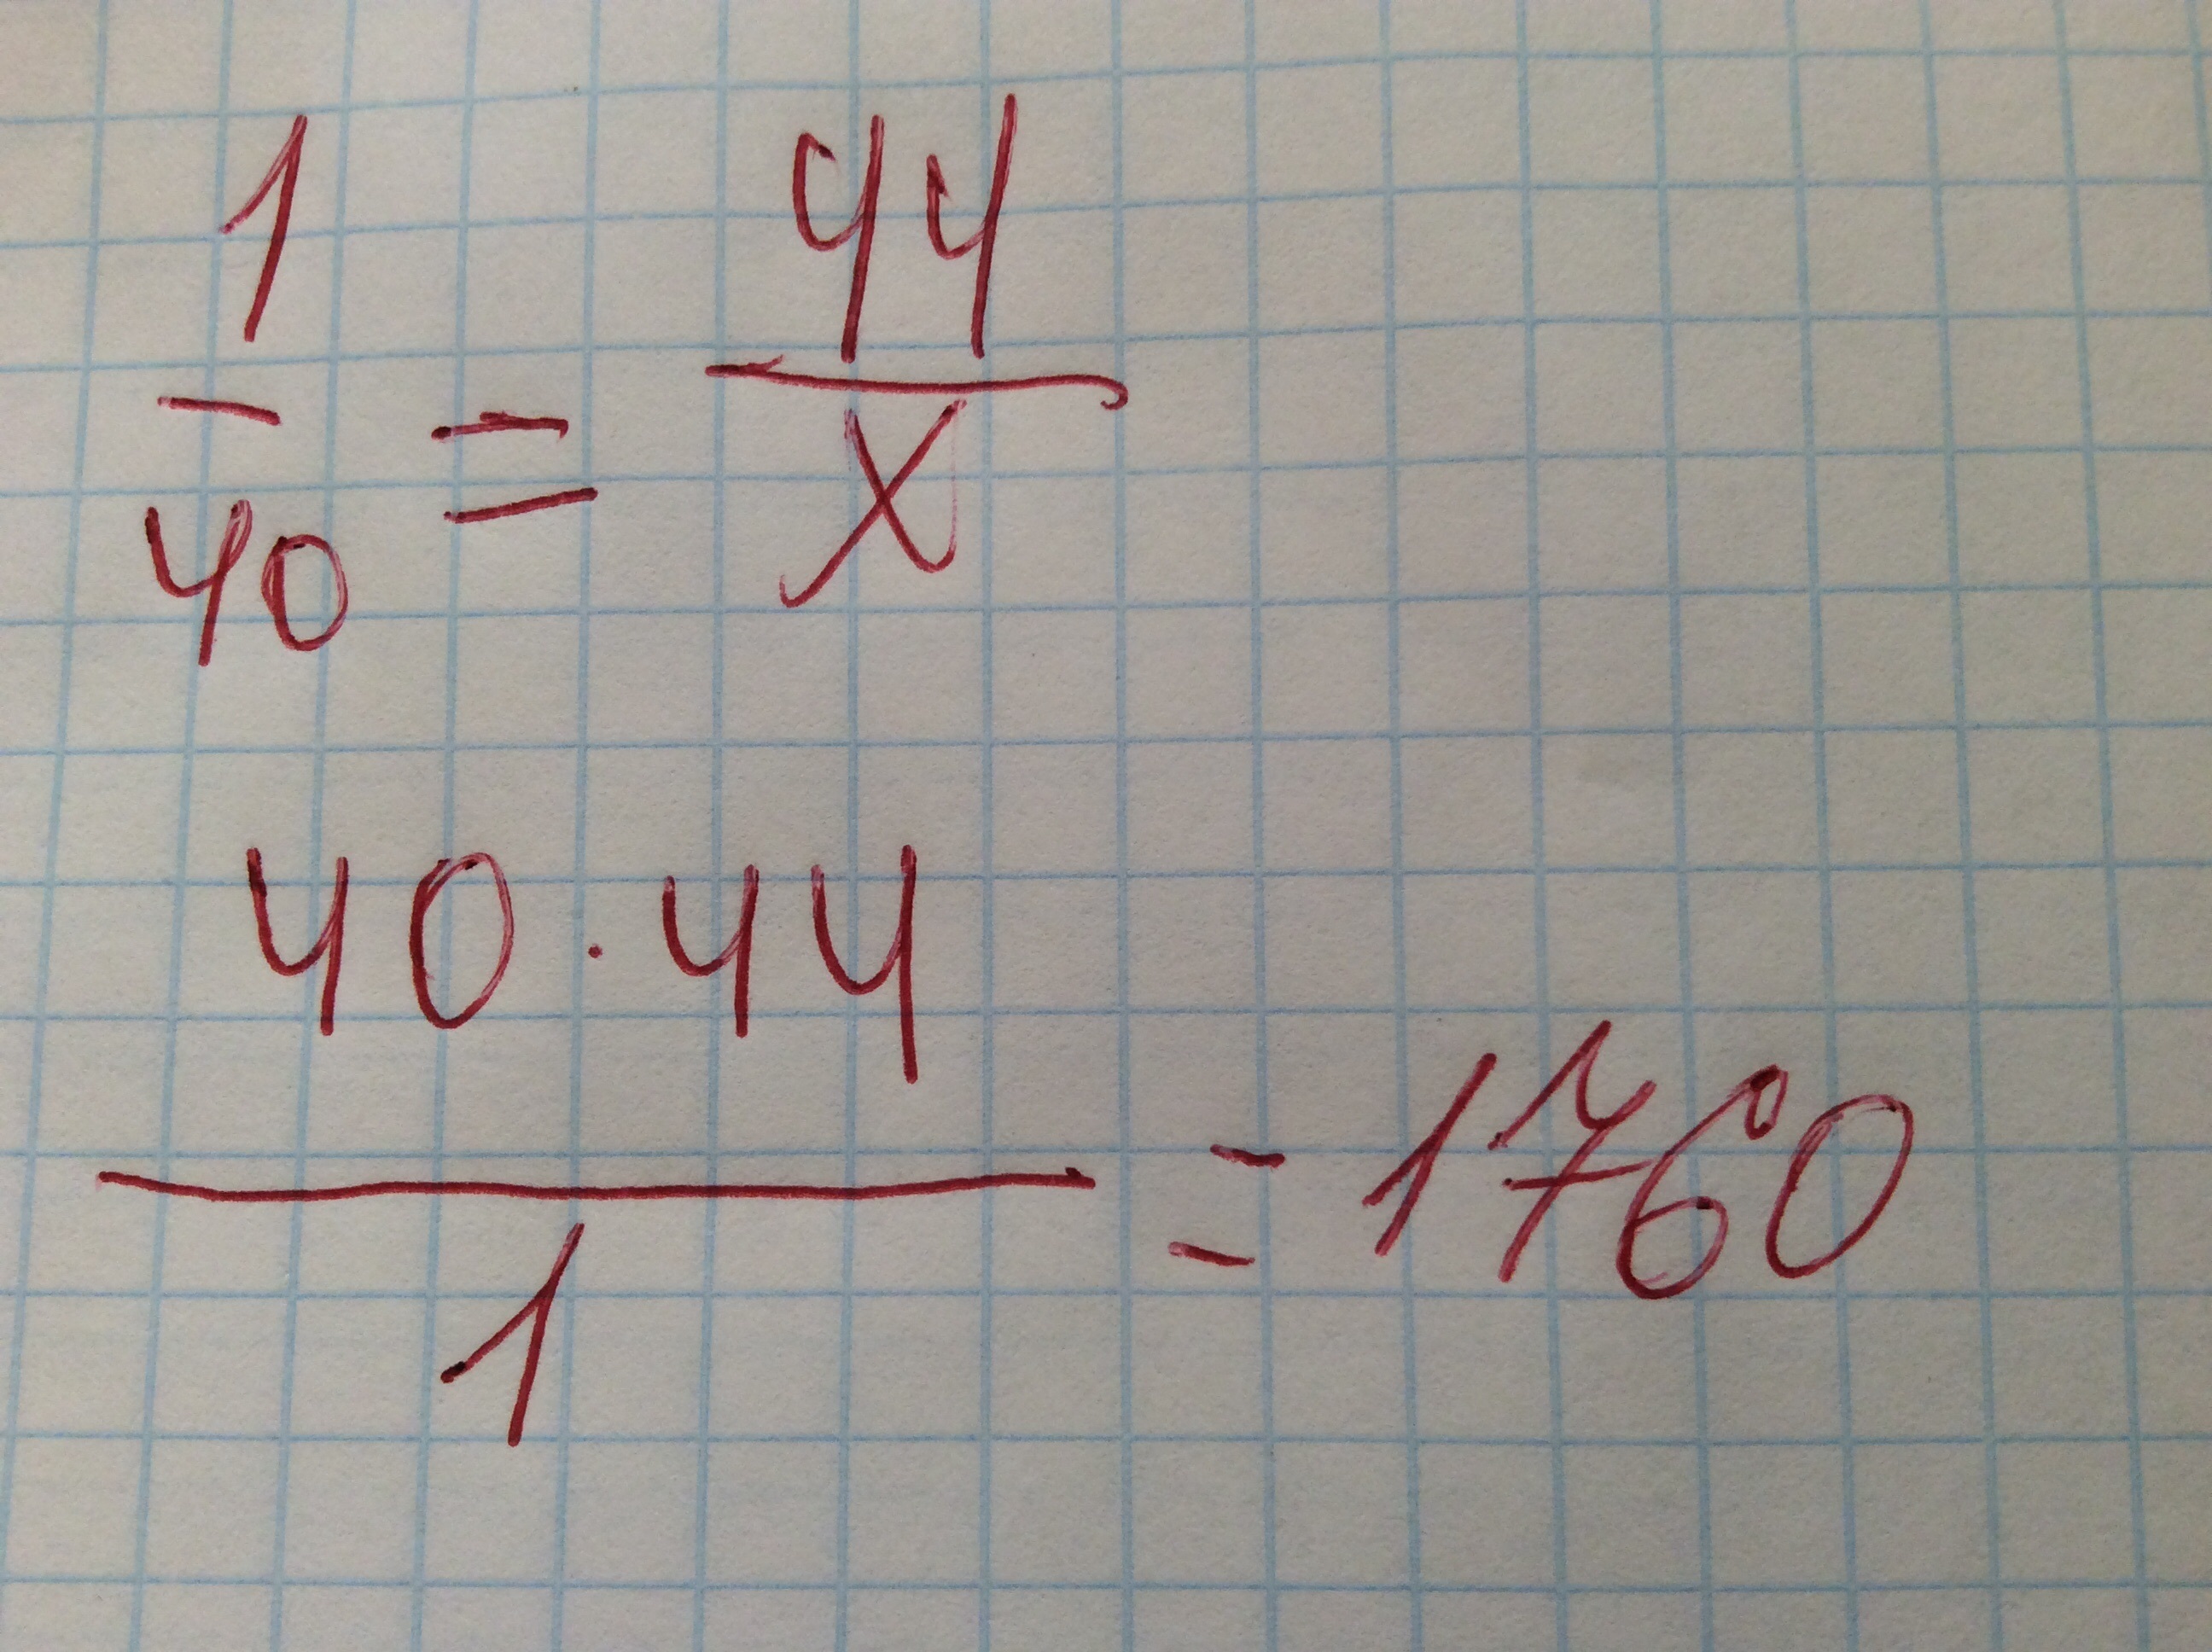 1/40 = 44/x
40·44/1 = 1760